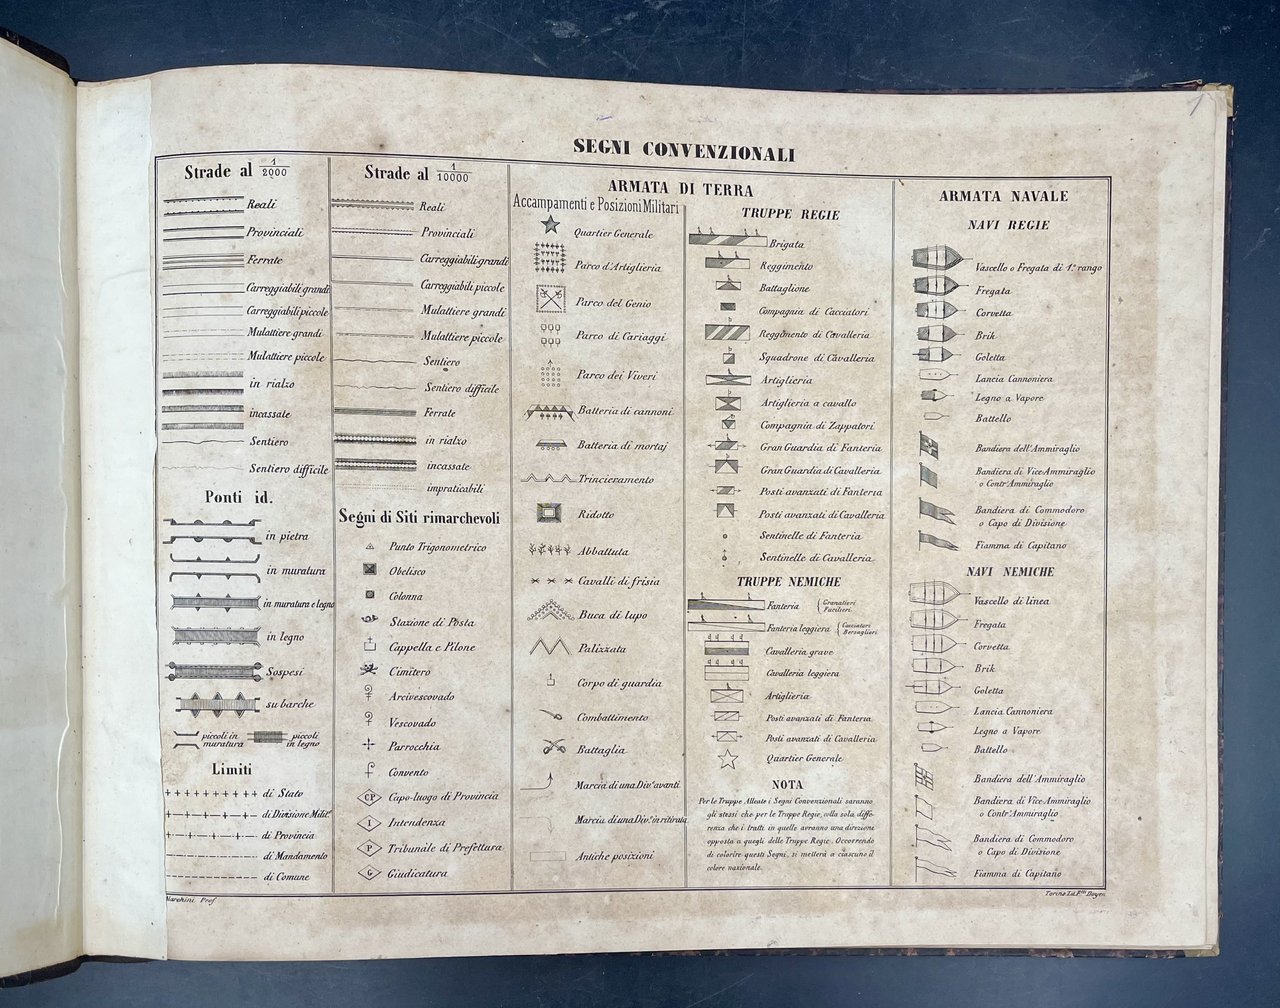 SEGNI CONVENZIONALI
Strade al 1/2000
Reali
Provinciali
Ferrate
Carreggiabili grandi
Carreggiabili piccole
Mulattiere grandi
Mulattiere piccole
in rialzo
incassate
Sentiero
Sentiero difficile
Ponti id.
in pietra
in muratura
in muratura e legno
in legno
Sospesi
su barche
piccoli in muratura
piccoli in legno
Limiti
di Stato
di Divisione Milit.e
di Provincia
di Mandamento
di Comune
Strade al 1/10000
Reali
Provinciali
Carreggiabili grandi
Carreggiabili piccole
Mulattiere grandi
Mulattiere piccole
Sentiero
Sentiero difficile
Ferrate
in rialzo
incassate
impraticabili
Segni di Siti rimarchevoli
Punto Trigonometrico
Obelisco
Colonna
Stazione di Posta
Cappella e Pilone
Cimitero
Arcivescovado
Vescovado
Parrocchia
Convento
CP Capo-luogo di Provincia
I Intendenza
P Tribunale di Prefettura
G Giudicatura
ARMATA DI TERRA
Accampamenti e Posizioni Militari
Quartier Generale
Parco d'Artiglieria
Parco del Genio
Parco di Cariaggi
Parco dei Viveri
Batteria di cannoni
Batteria di mortaj
Trincieramento
Ridotto
Abbattuta
Cavalli di frisia
Buca di lupo
Palizzata
Corpo di guardia
Combattimento
Battaglia
Marcia di una Div.e avanti
Marcia di una Div.e in ritirata
Antiche posizioni
TRUPPE REGIE
Brigata
Reggimento
Battaglione
Compagnia di Cacciatori
Reggimento di Cavalleria
Squadrone di Cavalleria
Artiglieria
Artiglieria a cavallo
Compagnia di Zappatori
Gran Guardia di Fanteria
Gran Guardia di Cavalleria
Posti avanzati di Fanteria
Posti avanzati di Cavalleria
Sentinelle di Fanteria
Sentinelle di Cavalleria
TRUPPE NEMICHE
Fanteria { Granatieri Fucilieri
Fanteria leggiera { Cacciatori Bersaglieri
Cavalleria grave
Cavalleria leggiera
Artiglieria
Posti avanzati di Fanteria
Posti avanzati di Cavalleria
Quartier Generale
NOTA
Per le Truppe Alleate i Segni Convenzionali saranno
gli stessi che per le Truppe Regie, colla sola diffe-
renza che i tratti in quelle avranno una direzione
opposta a quegli delle Truppe Regie. Occorrendo
di colorire questi Segni, si metterà a ciascuno il
colore nazionale.
ARMATA NAVALE
NAVI REGIE
Vascello o Fregata di 1.o rango
Fregata
Corvetta
Brik
Goletta
Lancia Cannoniera
Legno a Vapore
Battello
Bandiera dell'Ammiraglio
Bandiera di Vice-Ammiraglio
o Contr'Ammiraglio
Bandiera di Commodoro
o Capo di Divisione
Fiamma di Capitano
NAVI NEMICHE
Vascello di linea
Fregata
Corvetta
Brik
Goletta
Lancia Cannoniera
Legno a Vapore
Battello
Bandiera dell'Ammiraglio
Bandiera di Vice-Ammiraglio
o Contr'Ammiraglio
Bandiera di Commodoro
o Capo di Divisione
Fiamma di Capitano
Marchini Prof
Torino Lit. F.lli Doyen